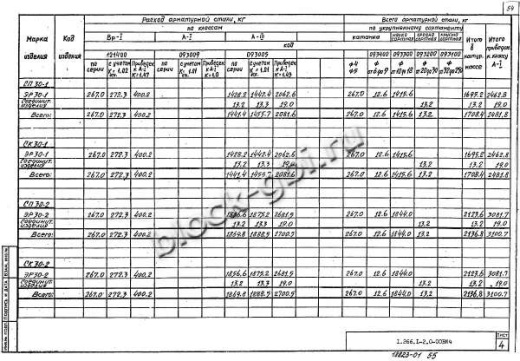 54
Расход арматурной стали, кг
Всего арматурной стали, кг
по классам
по укрупненному сортаменту
Марка изделия
Код изделия
Вр-I
А-I
А-II
катанка
Итого
код
121400
093009
093005
093400 093300 093200 093100
по серии
СП 30-1
ЭР30-1 267.0 272.3 400.2 1428.2 1442.4 2062.6 267.0 12.6 1415.6 1695.2 2462.8
13.2 13.3 19.0 13.2 13.2 19.0
Всего: 267.0 272.3 400.2 1441.4 1455.7 2081.6 267.0 12.6 1415.6 13.2 1708.4 2481.8
СК 30-1
ЭР30-1 267.0 272.3 400.2 1428.2 1442.4 2062.6 267.0 12.6 1415.6 1695.2 2462.8
13.2 13.3 19.0 13.2 13.2 19.0
Всего: 267.0 272.3 400.2 1441.4 1455.7 2081.6 267.0 12.6 1415.6 13.2 1708.4 2481.8
СП 30-2
ЭР30-2 267.0 272.3 400.2 1856.6 1875.2 2681.9 267.0 12.6 1844.0 2123.6 3081.7
13.2 13.3 19.0 13.2 13.2 19.0
Всего: 267.0 272.3 400.2 1869.8 1888.5 2700.9 267.0 12.6 1844.0 13.2 2136.8 3100.7
СК 30-2
ЭР30-2 267.0 272.3 400.2 1856.6 1875.2 2681.9 267.0 12.6 1844.0 2123.6 3081.7
13.2 13.3 19.0 13.2 13.2 19.0
Всего: 267.0 272.3 400.2 1869.8 1888.5 2700.9 267.0 12.6 1844.0 13.2 2136.8 3100.7
block-gbi.ru
1.266.1-2.0-00ВМ4
Лист
4
18823-01 55